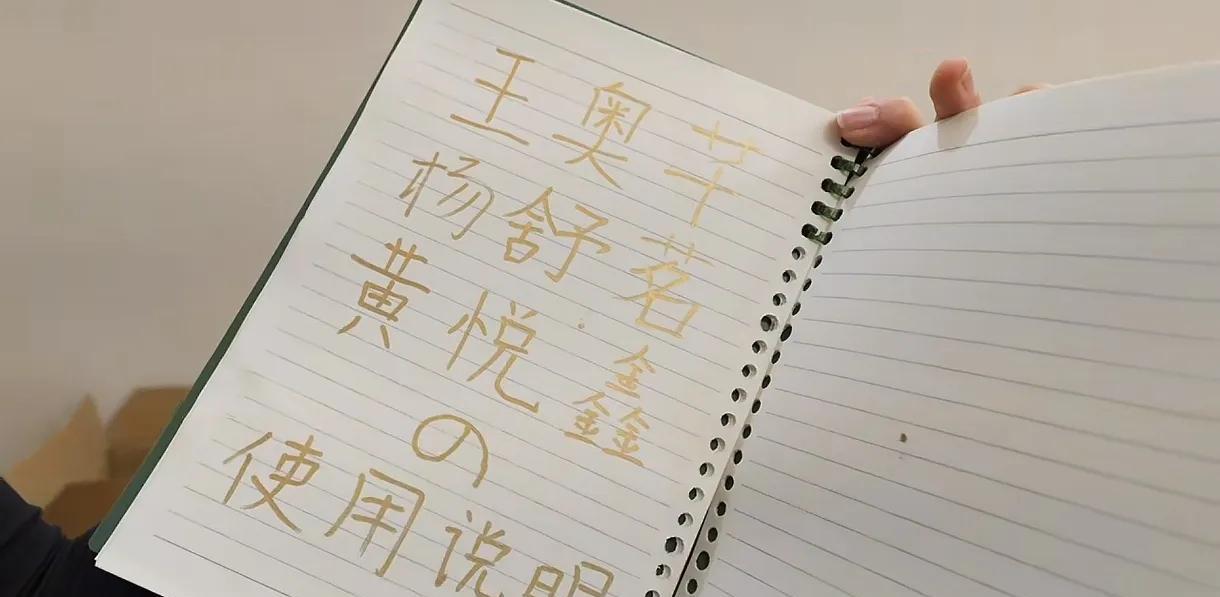 王奥芊
杨舒茗
黄悦鑫
の
使用说明